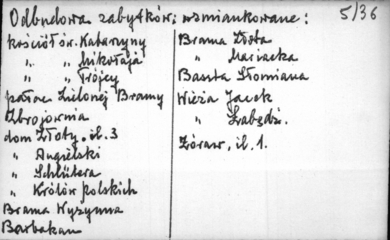 Odbudowa zabytków; wzmiankowane: 5/36
kościół św. Katarzyny
" " Mikołaja
" " Trójcy
pałac Zielonej Bramy
Zbrojownia
dom Złoty, il. 3
" Angielski
" Schlütera
" Królów polskich
Brama Wyżynna
Barbakan
Brama Złota
" Mariacka
Baszta Słomiana
Wieża Jacek
" Łabędź.
Żóraw, il. 1.